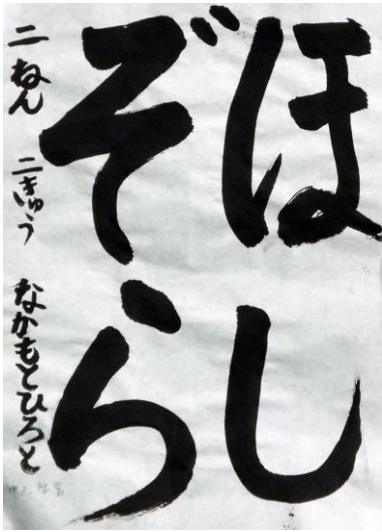 ほし
ぞら
二ねん 二きゅう なかもとひろと